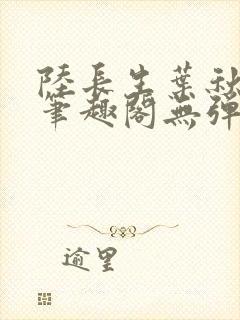 陸長生葉秋
筆趣閣無彈
逾里